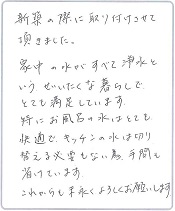 新築の際に取り付けさせて
頂きました。
家中の水がすべて浄水と
いうぜいたくな暮らしで
とても満足しています。
特にお風呂の水はとても
快適で、キッチンの水は切り
替える必要もない為、手間も
省けています。
これからも末永くよろしくお願いします